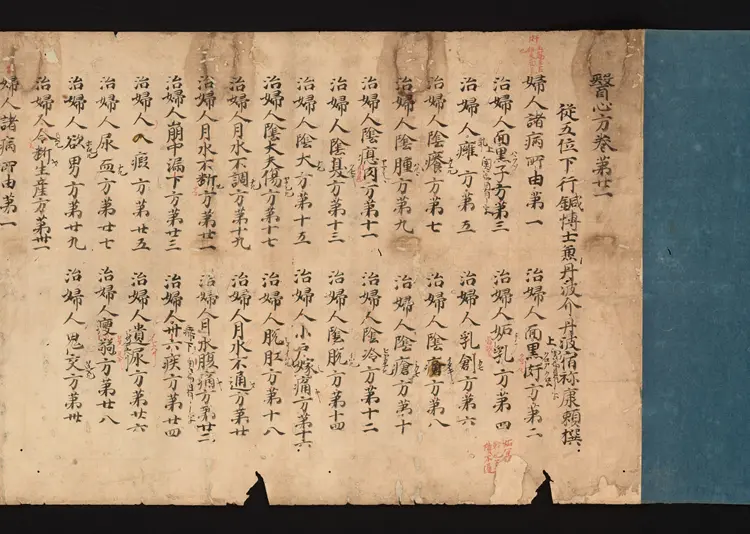 醫心方卷第廿一
從五位下行鍼博士兼丹波介丹波宿祢康頼撰
婦人諸病所由第一
治婦人面黒皯方第二
治婦人面黒子方第三
治婦人妬乳方第四
治婦人癕方第五
治婦人乳創方第六
治婦人陰癢方第七
治婦人陰方第八
治婦人陰腫方第九
治婦人陰瘡方第十
治婦人陰息肉方第十一
治婦人陰冷方第十二
治婦人陰臭方第十三
治婦人陰脱方第十四
治婦人陰大方第十五
治婦人小户嫁痛方第十六
治婦人陰丈夫傷方第十七
治婦人脱肛方第十八
治婦人月水不調方第十九
治婦人月水不通方第廿
治婦人月水不断方第廿一
治婦人月水腹痛方第廿二
治婦人崩中漏下方第廿三
治婦人卅六疾方第廿四
治婦人八瘕方第廿五
治婦人遺尿方第廿六
治婦人尿血方第廿七
治婦人瘦弱方第廿八
治婦人欲男方第廿九
治婦人鬼交方第卅
治婦人令断生産方第卅一
婦人諸病所由第一